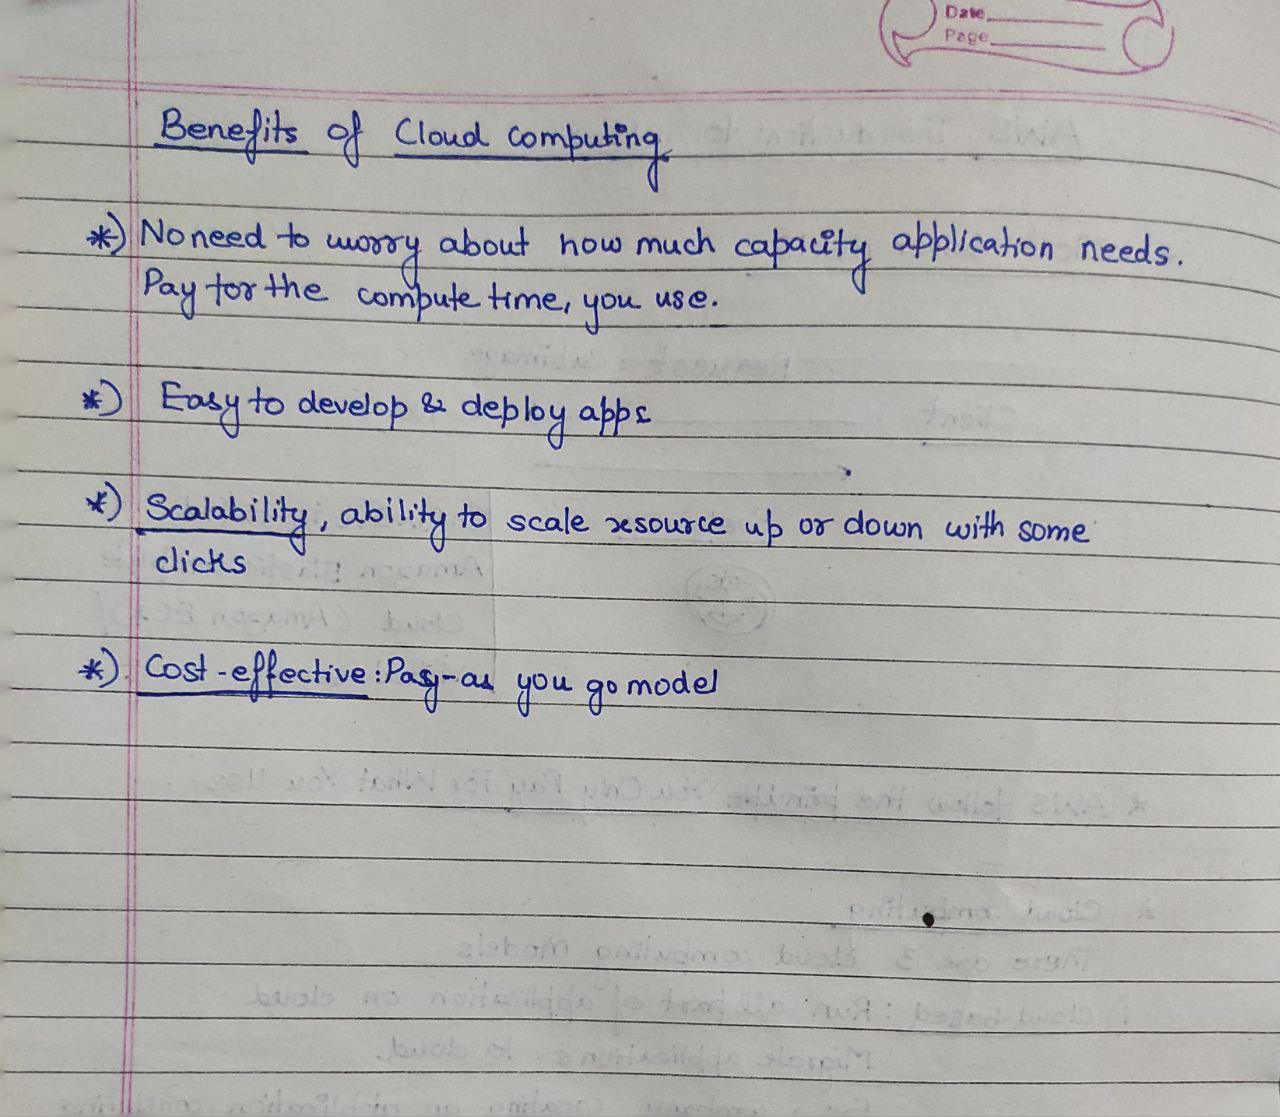 Date
Page
Benefits of Cloud computing
*) No need to worry about how much capacity application needs.
Pay for the compute time, you use.
*) Easy to develop & deploy apps
*) Scalability, ability to scale resource up or down with some
clicks
*) Cost-effective: Pay-as you go model